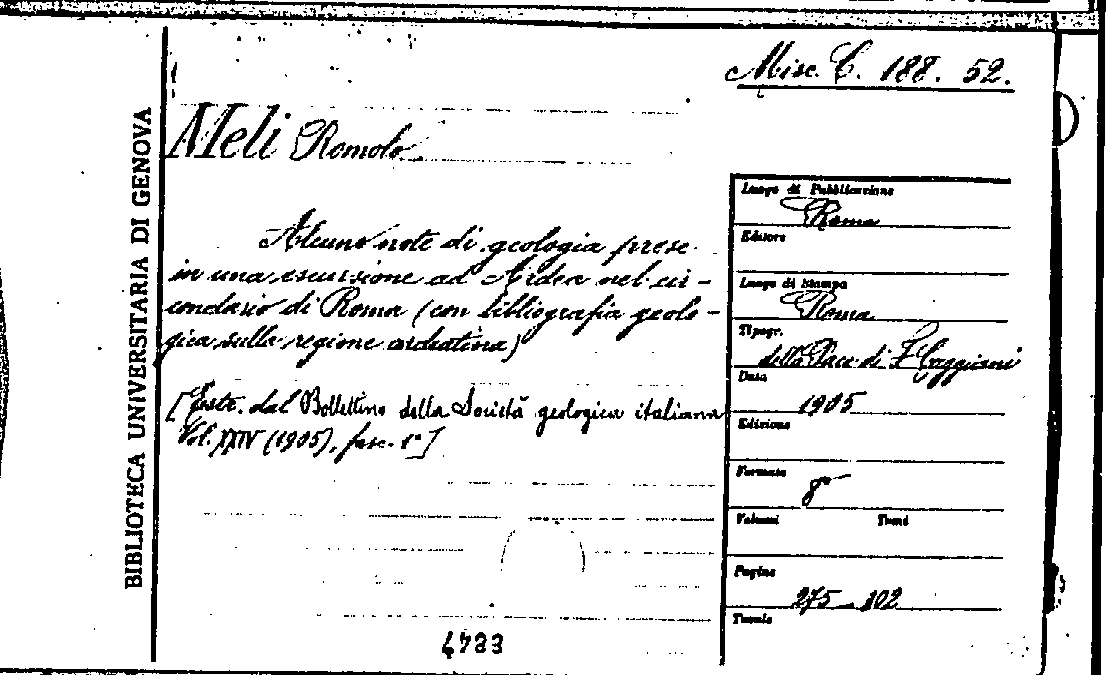 Misc. C. 188. 52.
BIBLIOTECA UNIVERSITARIA DI GENOVA
Meli Romolo
Alcune note di geologia prese
in una escursione ad Ardea nel cir-
condario di Roma (con bibliografia geolo-
gica sulla regione ardeatina)
[Estr. dal Bollettino della Società geologica italiana
Vol. XXIV (1905), fasc. 1º]
Luogo di Pubblicazione
Roma
Editore
Luogo di Stampa
Roma
Tipogr.
della Pace di F. Cuggiani
Data
1905
Edizione
Formato
8º
Volumi Tomi
Pagine
275-302
Tavole